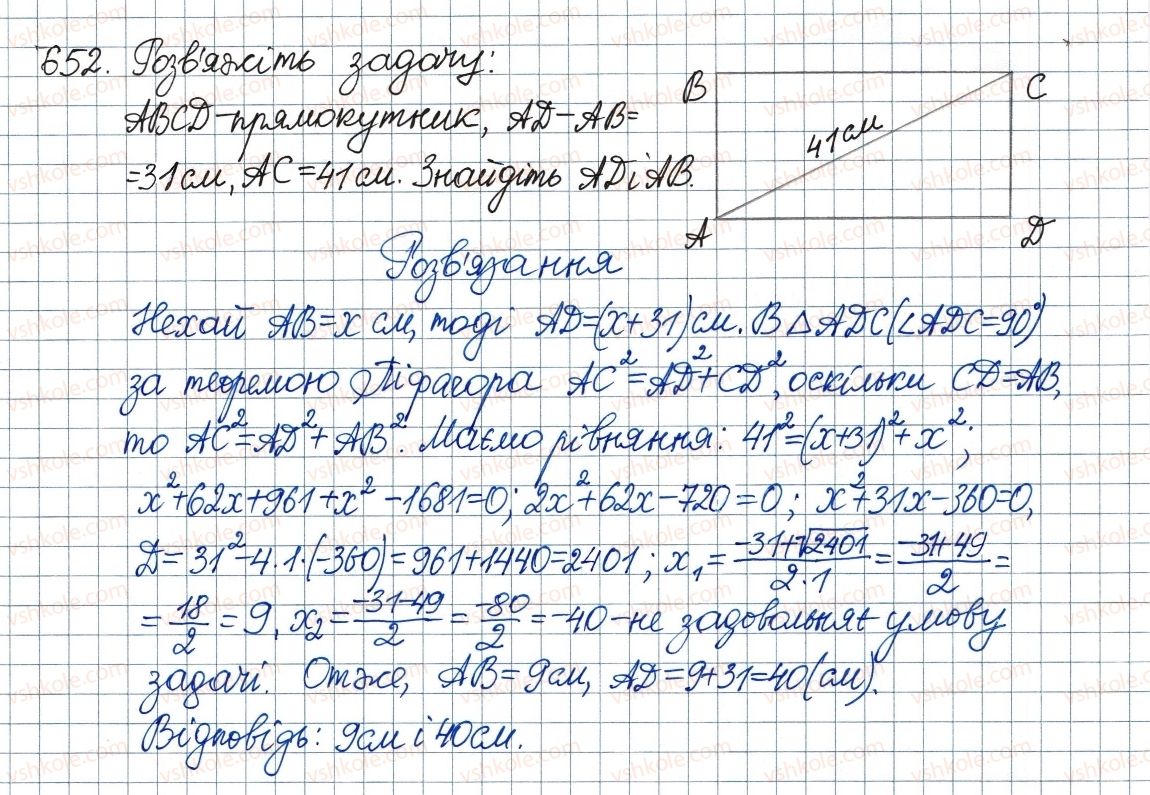 652. Розв'яжіть задачу:
ABCD-прямокутник, AD-AB=
=31см, AC=41см. Знайдіть AD і AB.
B
C
41см
A
D
Розв'язання
Нехай AB=x см, тоді AD=(x+31)см. В △ADC(∠ADC=90°)
за теоремою Піфагора AC²=AD²+CD², оскільки CD=AB,
то AC²=AD²+AB². Маємо рівняння: 41²=(x+31)²+x²;
x²+62x+961+x²-1681=0; 2x²+62x-720=0; x²+31x-360=0,
D=31²-4·1·(-360)=961+1440=2401; x₁=(-31+√2401)/(2·1)=(-31+49)/2=
=18/2=9, x₂=(-31-49)/2=-80/2=-40-не задовольняє умову
задачі. Отже, AB=9см, AD=9+31=40(см).
Відповідь: 9см і 40см.